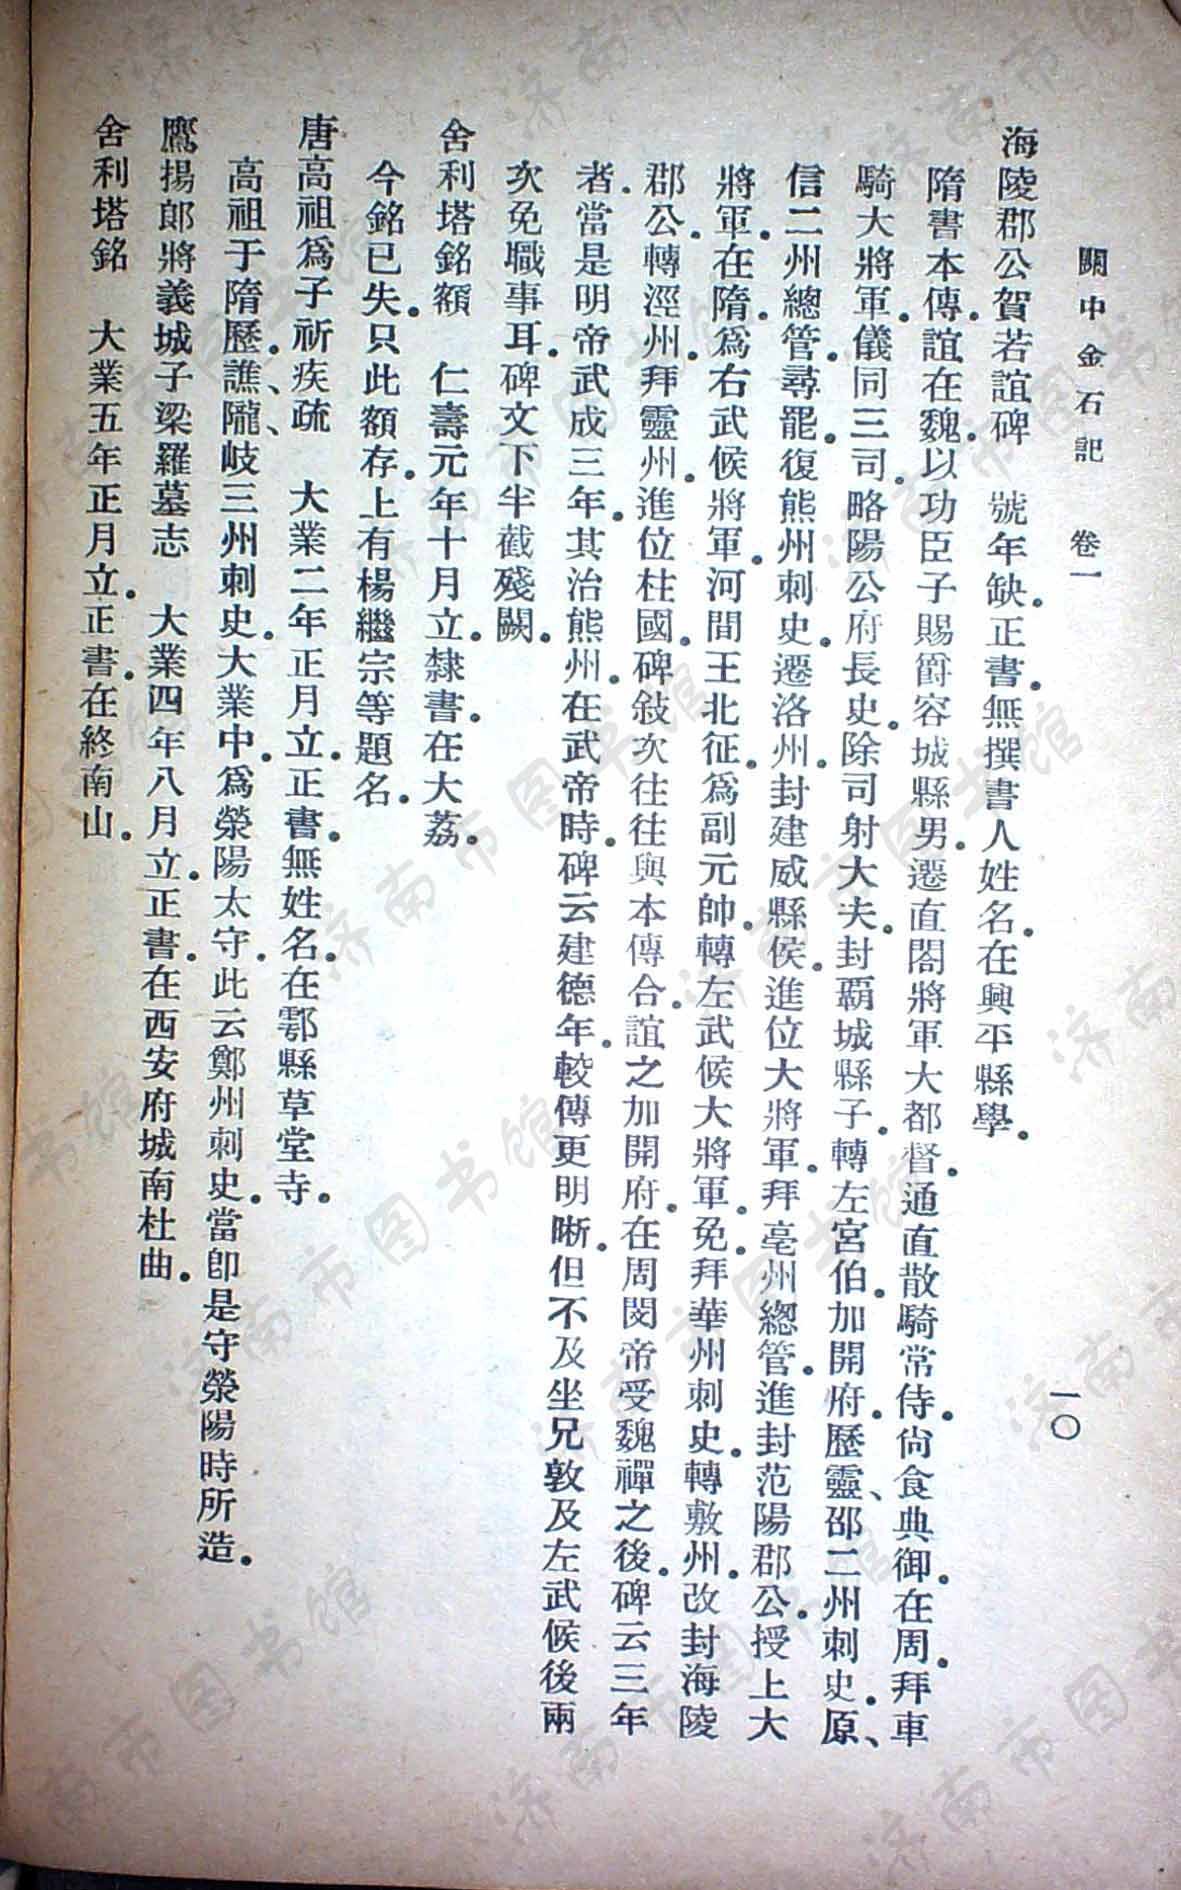 關中金石記 卷一 一〇
海陵郡公賀若誼碑 號年缺。正書。無撰書人姓名。在興平縣學。
隋書本傳。誼在魏。以功臣子賜爵容城縣男。遷直閣將軍大都督。通直散騎常侍。尙食典御。在周。拜車
騎大將軍。儀同三司。略陽公府長史。除司射大夫。封霸城縣子。轉左宮伯。加開府。歷靈、邵二州刺史。原、
信二州總管。尋罷。復熊州刺史。遷洛州。封建威縣侯。進位大將軍。拜亳州總管。進封范陽郡公。授上大
將軍。在隋。爲右武候將軍。河間王北征。爲副元帥。轉左武候大將軍。免。拜華州刺史。轉敷州。改封海陵
郡公。轉涇州。拜靈州。進位柱國。碑敍次往往與本傳合。誼之加開府。在周閔帝受魏禪之後。碑云三年
者。當是明帝武成三年。其治熊州。在武帝時。碑云建德年。較傳更明晰。但不及坐兄敦及左武候後兩
次免職事耳。碑文下半截殘闕。
舍利塔銘額 仁壽元年十月立。隸書。在大荔。
今銘已失。只此額存。上有楊繼宗等題名。
唐高祖爲子祈疾疏 大業二年正月立。正書。無姓名。在鄠縣草堂寺。
高祖于隋歷。譙、隴、岐三州刺史。大業中。爲滎陽太守。此云鄭州刺史。當卽是守滎陽時所造。
鷹揚郞將義城子梁羅墓志 大業四年八月立。正書。在西安府城南杜曲。
舍利塔銘 大業五年正月立。正書。在終南山。
济南市图书馆